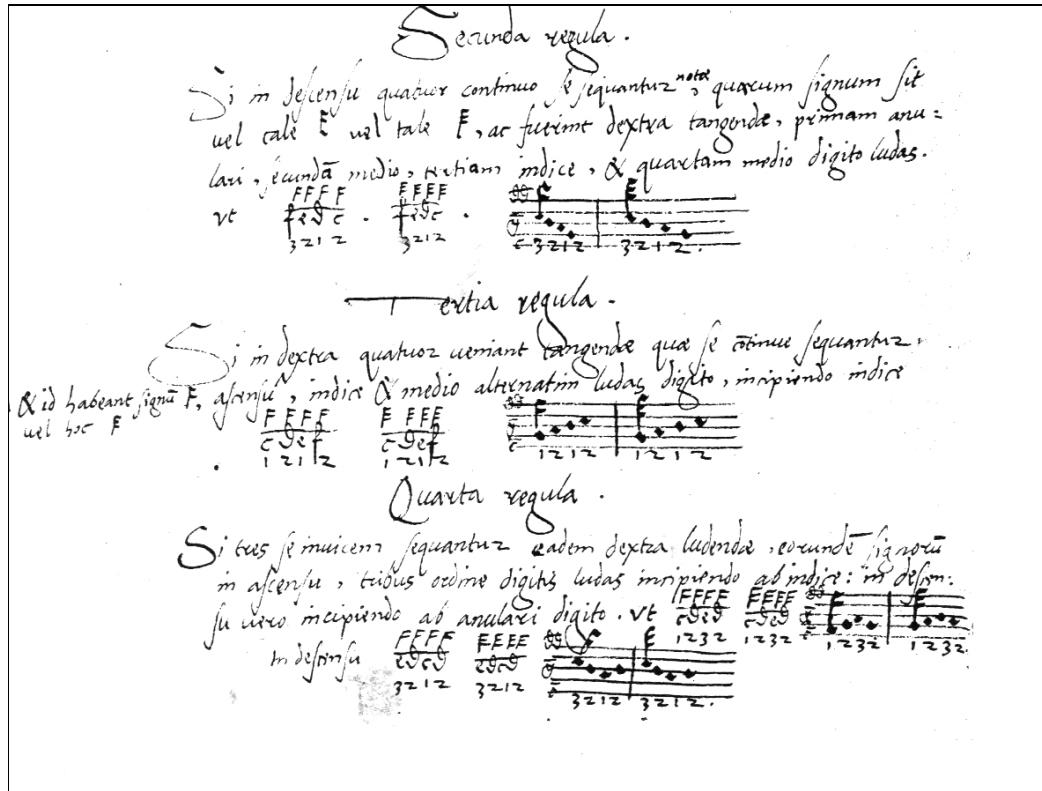 Secunda regula.
Si in descensu quatuor continuo se sequantur notæ, quarum signum sit
vel tale F vel tale F, ac fuerint dextra tangendæ, primam anu-
lari, secundā medio, tertiam indice, & quartam medio digito ludas.
vt F F F F F F F F
f e d c . f e d c .
3 2 1 2 3 2 1 2 3 2 1 2 3 2 1 2 .
Tertia regula.
Si in dextra quatuor veniant tangendæ quæ se cōtinue sequantur,
& id habeant signū F, ascensu, indice & medio alternatim ludas digito, incipiendo indice
vel hoc F
F F F F F F F F
c d e f c d e f
1 2 1 2 1 2 1 2 1 2 1 2 1 2 1 2
Quarta regula.
Si tres se inuicem sequantur eadem dextra ludendæ, eorundē signorū
in ascensu, tribus ordine digitis ludas incipiendo ab indice: in descen-
su vero incipiendo ab anulari digito. Vt F F F F F F F F
c d e d c d e d
1 2 3 2 1 2 3 2 1 2 3 2 1 2 3 2.
In descensu F F F F F F F F
e d c d e d c d
3 2 1 2 3 2 1 2 3 2 1 2 3 2 1 2 .